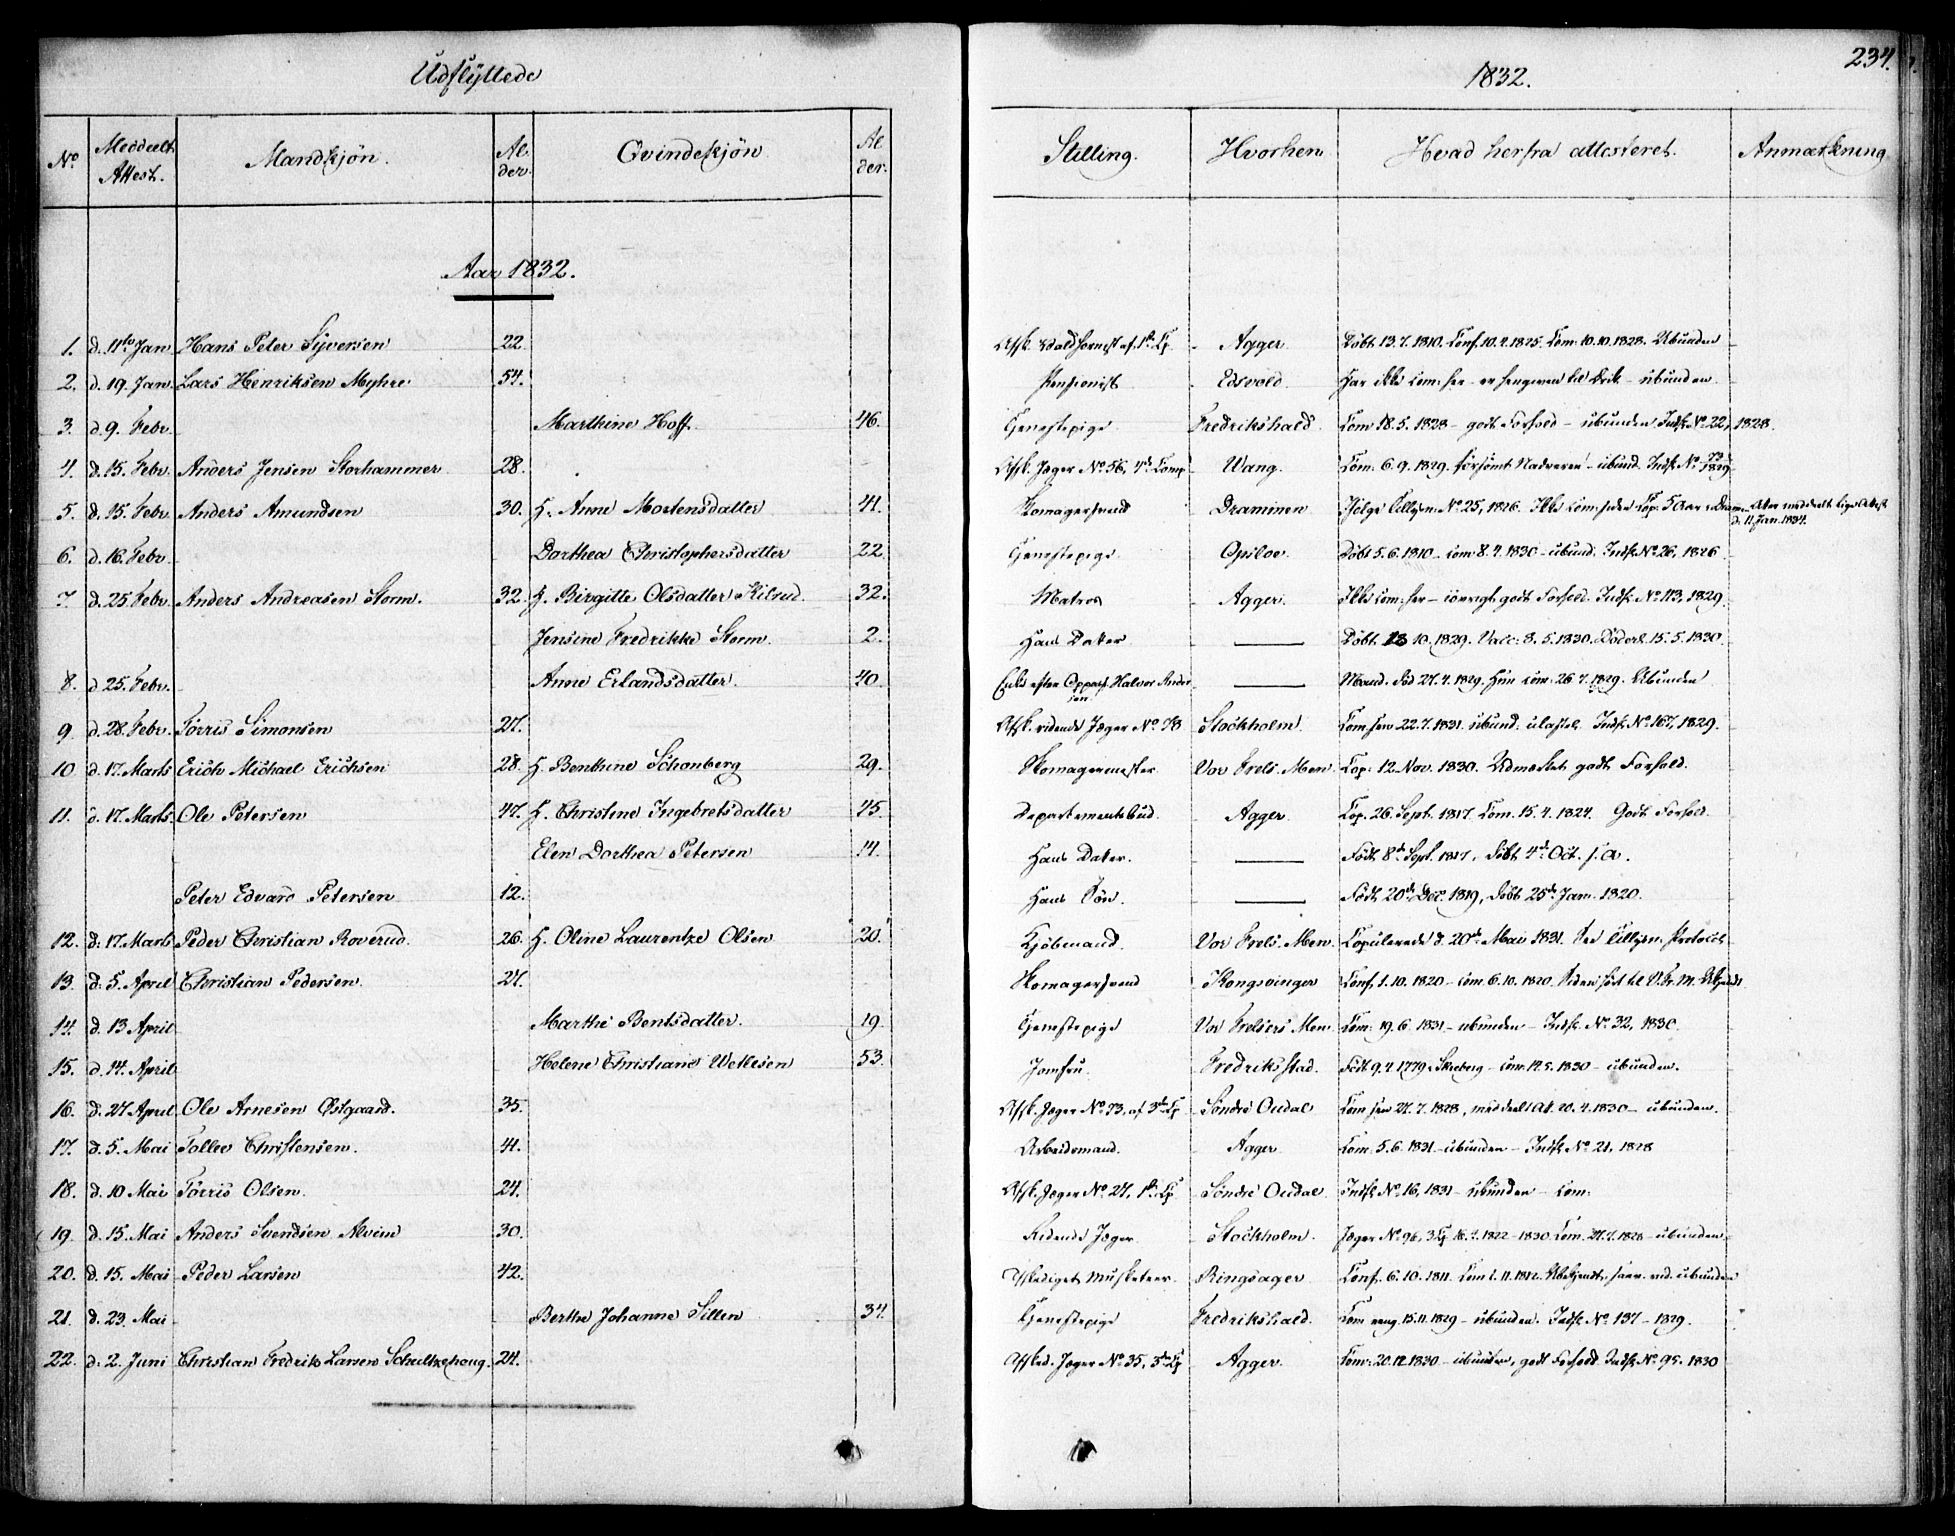 Udflyttede
1832.
234.
No. Meddeelt Attest. Mandkjön. Alder. Qvindekjön Alder. Stilling. Hvorhen Hvad herfra attesteret. Anmærkning
Aar 1832.
1. d. 11te Jan Hans Peter Syversen 22. Afsk. Valdhornist af 1ste Cp. Agger Döbt 13.7.1810. Conf. 10.4.1825. Com: 10.10.1828. Ubunden
2. d. 19. Jan. Lars Henriksen Myhre 54. Pensionist Edsvold Har ikke com: her - er hengiven til Drik - ubunden
3. d. 9. Febr. Marthine Hoff 46. Tjenestepige Fredrikshald Com 18.5.1828 - godt Forhold - ubunden Indf. No. 22, 1828.
4. d. 15. Febr. Anders Jensen Storhammer 28. Afsk. Jæger No. 56, 4de Comp Wang. Com: 6.9.1829. forsömt Nadveren - ubund. Indf. No. 1829
5. d. 15. Febr. Anders Amundsen 30. H. Anne Mortensdatter 41. Skomagersvend Drammen Ifölge Lillysn: No. 25, 1826. Ikke com: siden Cop. 5 Aar i Dram. Atter meddeelt lige Attest d. 11 Jan. 1834.
6. d. 16. Febr. Dorthea Christophersdatter 22. Tjenestepige Opsloe Döbt 5.6.1810 - com 8.4.1830 - ubund. Indf. No. 26, 1826
7. d. 25. Febr. Anders Andreasen Storm. 32. H. Birgitte Olsdatter Kilsud. 32. Matros Agger. Ikke com: her - iövrigt godt Forhold. Indf. No. 113, 1829.
Jensine Fredrikke Storm. 2. Hans Datter Döbt. 18 10.1829. Vacc: 8.5.1830. Döderl. 15.5.1830.
8. d. 25. Febr. Anne Erlandsdatter. 40. Enke efter Oppass. Halvor Andersen Mand. död 27.4.1829. Hun com: 26.7.1829. Ubunden
9 d. 28. Febr. Torris Simonsen 27. Afsk. ridende Jæger No. 78 Stockholm. Com her 22.7.1831. ubund. ulastet. Indf. No. 167, 1829.
10 d. 17. Marts Erich Michael Erichsen 28. H. Benthine Schonberg 29. Skomagermester Vor Frels. Men. Cop: 12. Nov. 1830. Udmærket godt Forhold.
11. d. 17. Marts. Ole Petersen 47. H. Christine Ingebretsdatter 45. Departementsbud. Agger Cop. 26. Sept. 1817. Com. 15.4.1824. Godt Forhold.
Elen Dorthea Petersen 14. Hans Datter. Födt 8de Sept. 1817, döbt 4de Oct. s.a.
Peter Edvard Petersen 12. Hans Sön. Födt 20de Dec. 1819, döbt 25de Jan. 1820.
12. d. 17. Marts Peder Christian Roverud. 26. H. Oline Laurentze Olsen 20. Kjöbmand. Vor Frels. Men. Copulerede d. 20de Mai 1831. See Lillysn. Protocol
13. d. 5. April Christian Pedersen. 27. Skomagersvend Kongsvinger Conf. 1.10.1820 - com 6.10.1820. Siden hört til V. Fr. M.
14. d. 13 April Marthe Bentsdatter. 19. Tjenestepige Vor Frelsers Men Com: 19.6.1831 - ubunden - Indf. No. 32, 1830.
15. d. 14. April Helene Christiane Wetlesen 53. Jomfru Fredriksstad. Födt 9.4.1779 i Skeeberg - com: 12.5.1830 - ubunden.
16. d. 27 April Ole Arnesen Östgaard. 35. Afsk. Jæger No. 73, af 3de Cp Söndre Oudal Com her 27.7.1828, meddeelt At. 20.4.1830 - ubunden.
17. d. 5. Mai Tollev Christensen. 41. Arbeidsmand. Agger Com: 5.6.1831 - ubunden - Indf. No. 21, 1828
18. d. 10 Mai Torris Olsen. 24. Afsk. Jæger No. 27, 1ste Cp. Söndre Oudal Indf. No. 16, 1831 - ubunden - com.
19. d. 15. Mai Anders Svendsen Alvim 30. Ridende Jæger Stockholm. Jæger No. 96, 3 Cp 16.7.1822 - 1830 Com. 27.7.1828 - ubunden.
20. d. 15. Mai Peder Larsen 42. Afskediget Musketeer Ringsager Conf. 6.10.1811. Com 1.11.1812. Ubekjendt, ubunden
21. d. 23. Mai Berthe Johanne Sillen 34. Tjenestepige Fredrikshald. Com 15.11.1829 - ubunden. Indf. No. 137 - 1829.
22. d. 2. Juni Christian Fredrik Larsen Schultzehaug. 24. Afsked. Jæger No. 35, 3de Cp Agger. Com: 20.12.1830 - ubunden, godt Forhold Indf. No. 95. 1830